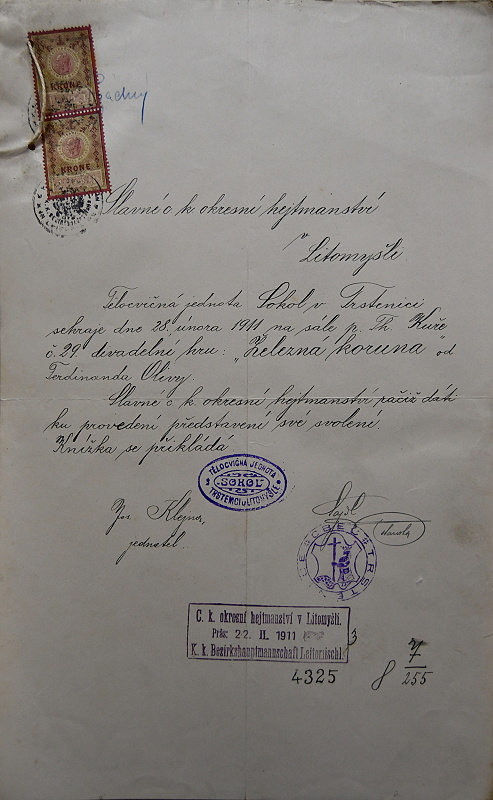 1 KRONE
1 KRONE
Slavné c. k. okresní hejtmanství
v
Litomyšli.
Tělocvičná jednota Sokol v Trstenici
sehraje dne 28. února 1911 na sále p. Th. Kuře
č. 29 divadelní hru: „Železná koruna" od
Ferdinanda Olivy.
Slavné c. k. okresní hejtmanství račiž dáti
ku provedení představení své svolení.
Knížka se přikládá
TĚLOCVIČNÁ JEDNOTA
„SOKOL"
V TRSTENICI U LITOMYŠLE
Jos. Klejna,
jednatel.
C. k. okresní hejtmanství v Litomyšli.
Präs: 22. II. 1911
3
K. k. Bezirkshauptmannschaft Leitomischl.
4325
8 7/255